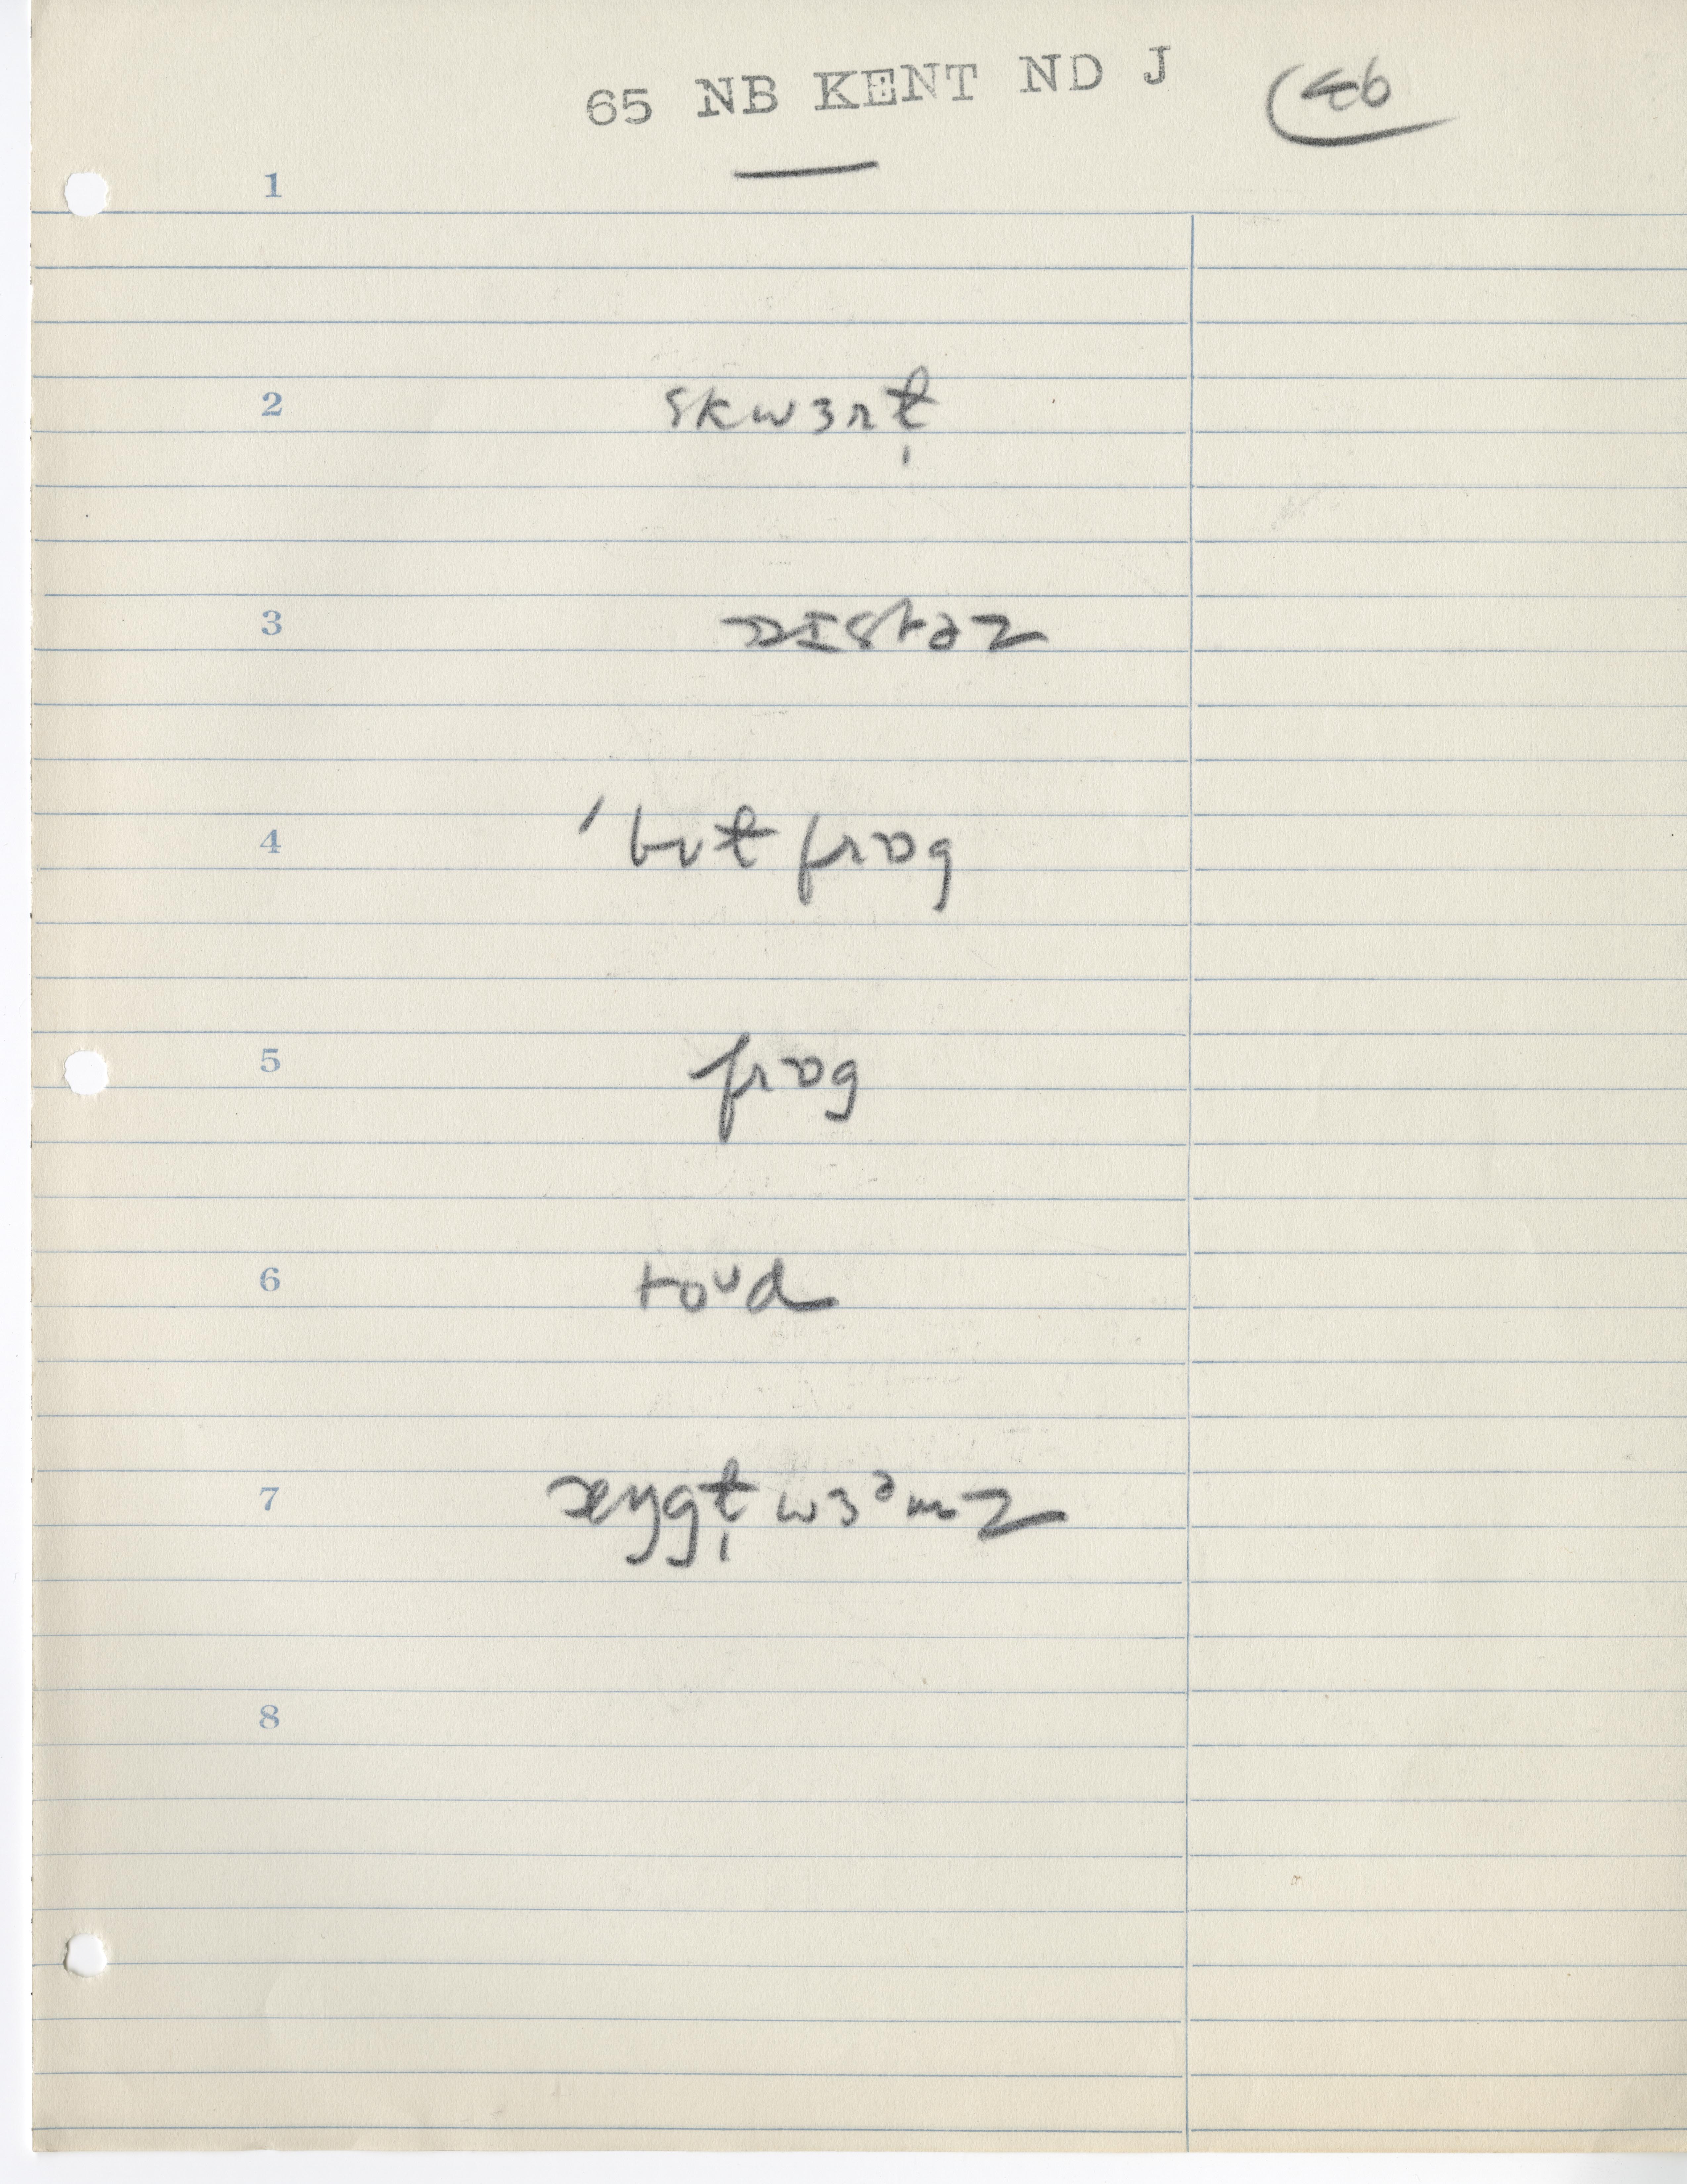 65 NB KENT ND J
46
1
2 skwɜɹɫ̩
3 ɔɪstəz
4 ˈbʊɫ frɒg
5 frɒg
6 toᶷd
7 æŋgɫ̩ wɜᵊmz
8